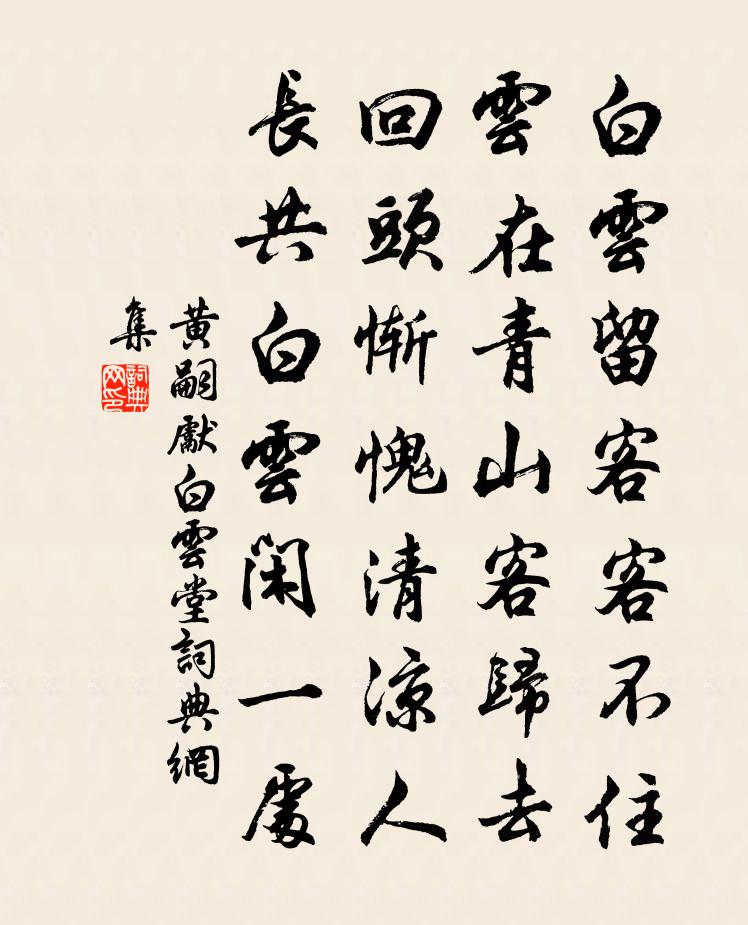 白雲留客客不住
雲在青山客歸去
回頭慚愧清涼人
長共白雲閑一處
黃嗣獻白雲堂詞典網
集
詞典
网印